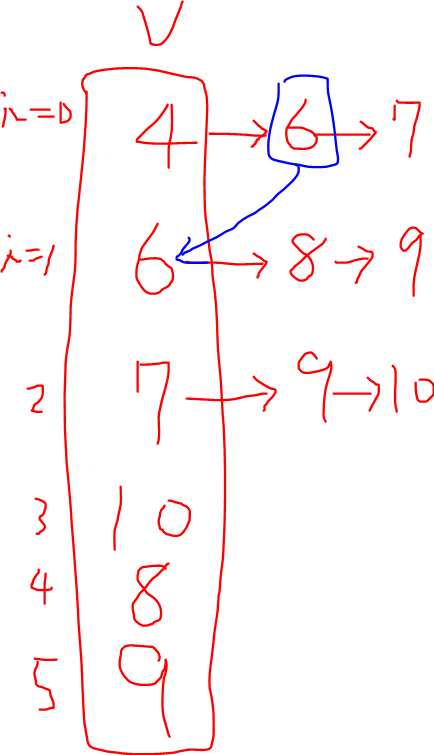 V
i=0 4 → 6 → 7
i=1 6 → 8 → 9
2 7 → 9 → 10
3 10
4 8
5 9